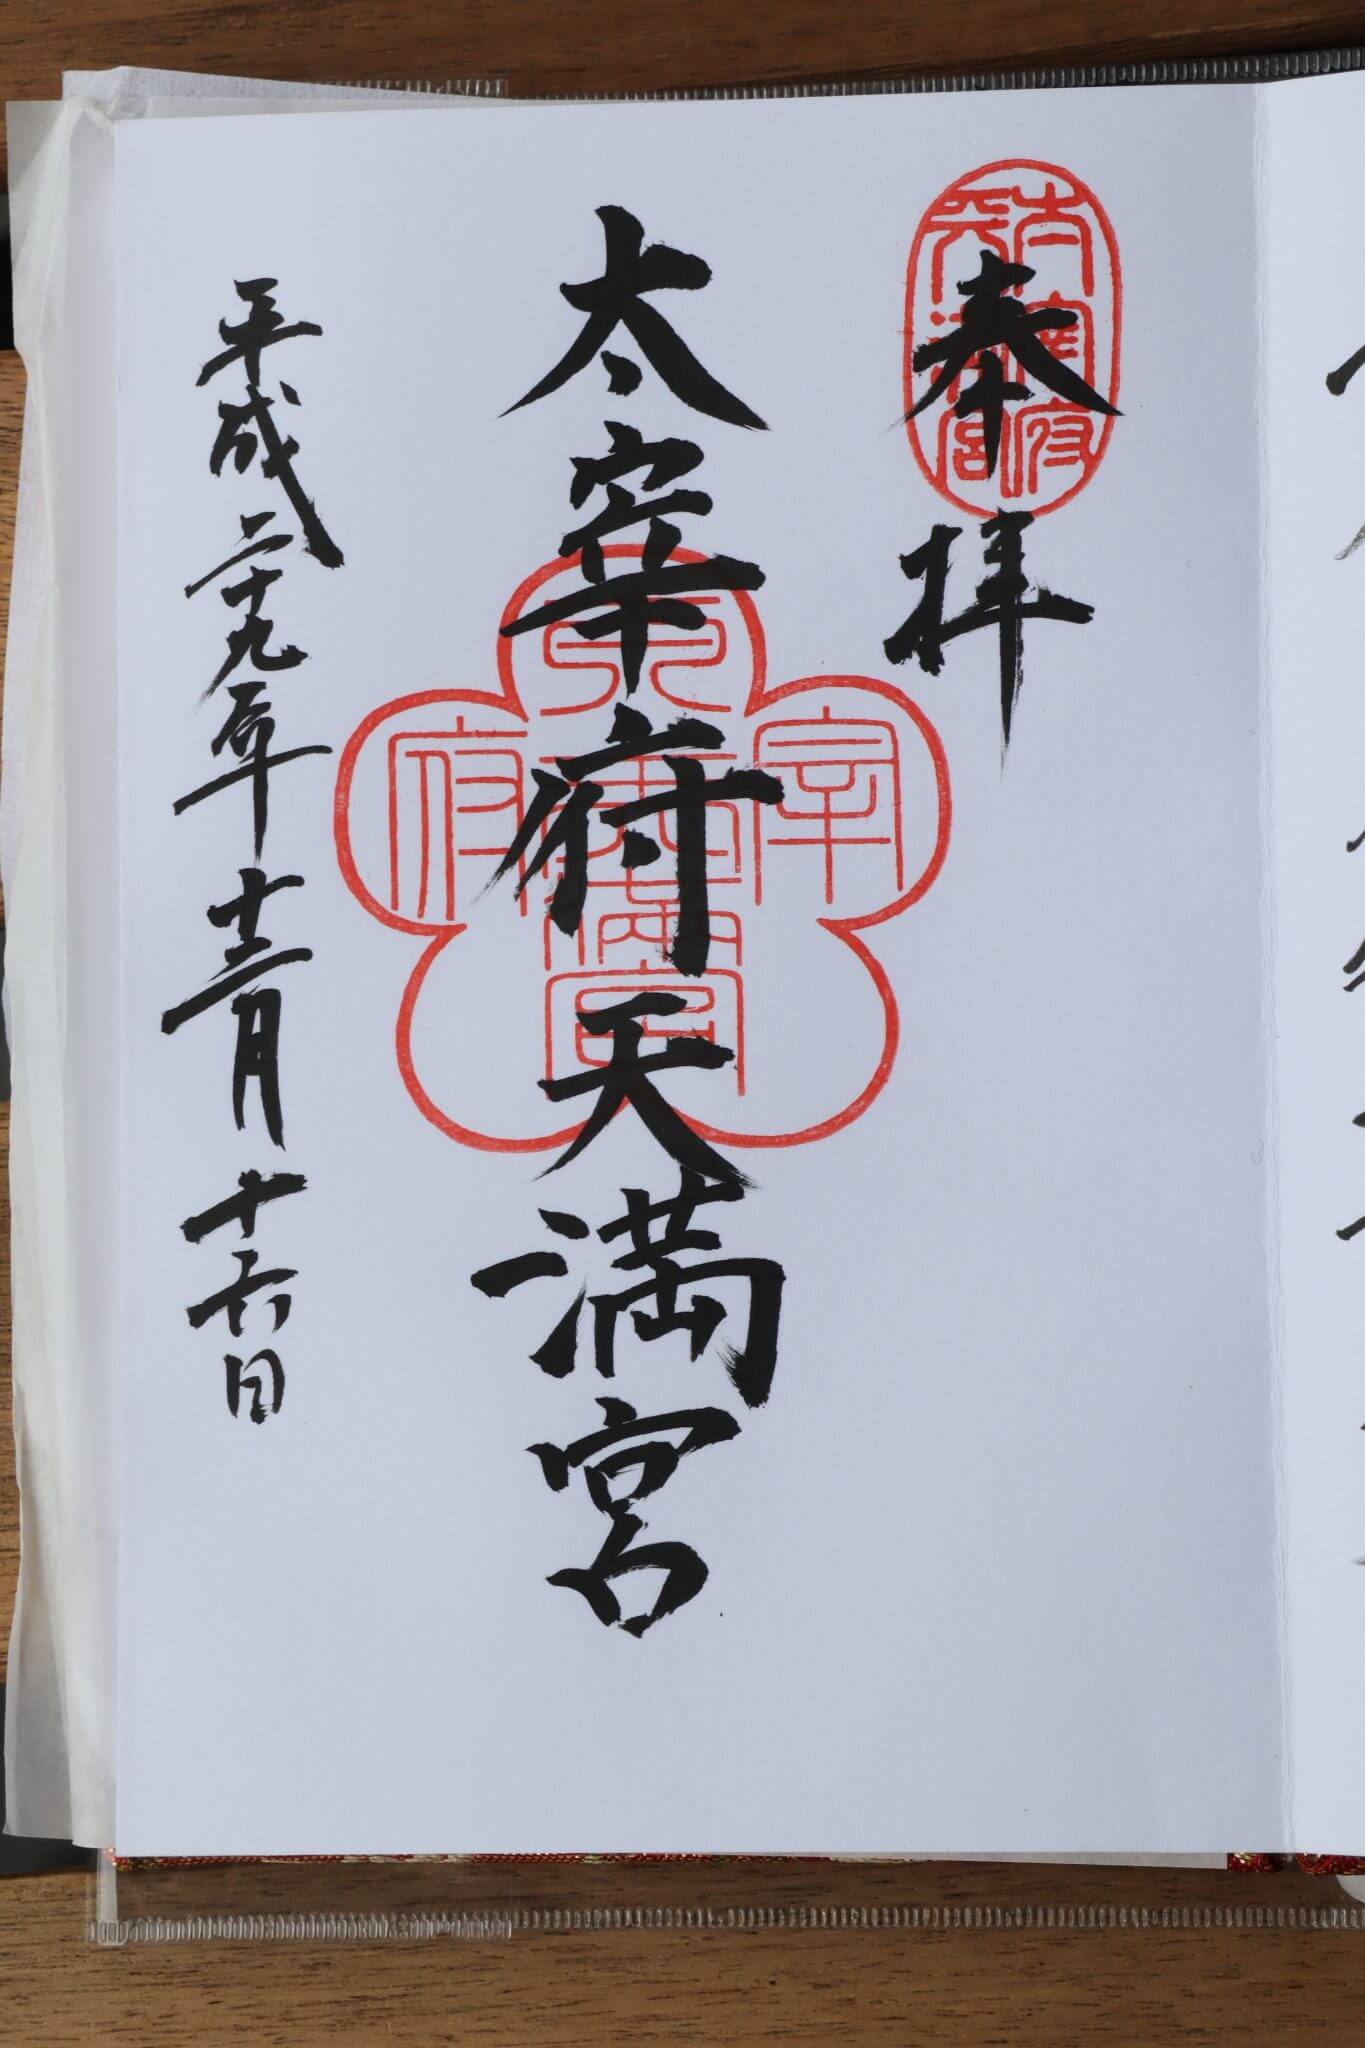 奉拝
太宰府天満宮
平成二十九年十二月十六日
太宰府天満宮